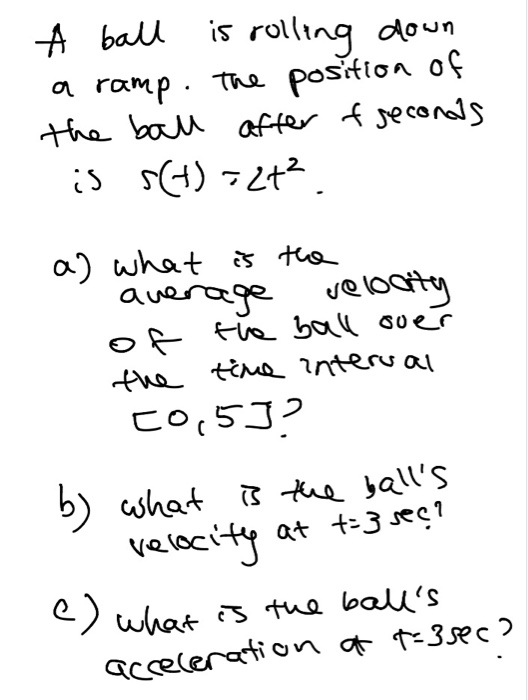 A ball is rolling down
a ramp. The position of
the ball after t seconds
is s(t) = 2t².
a) what is the
average velocity
of the ball over
the time interval
[0,5]?
b) what is the ball's
velocity at t=3 sec?
c) what is the ball's
acceleration at t=3sec?